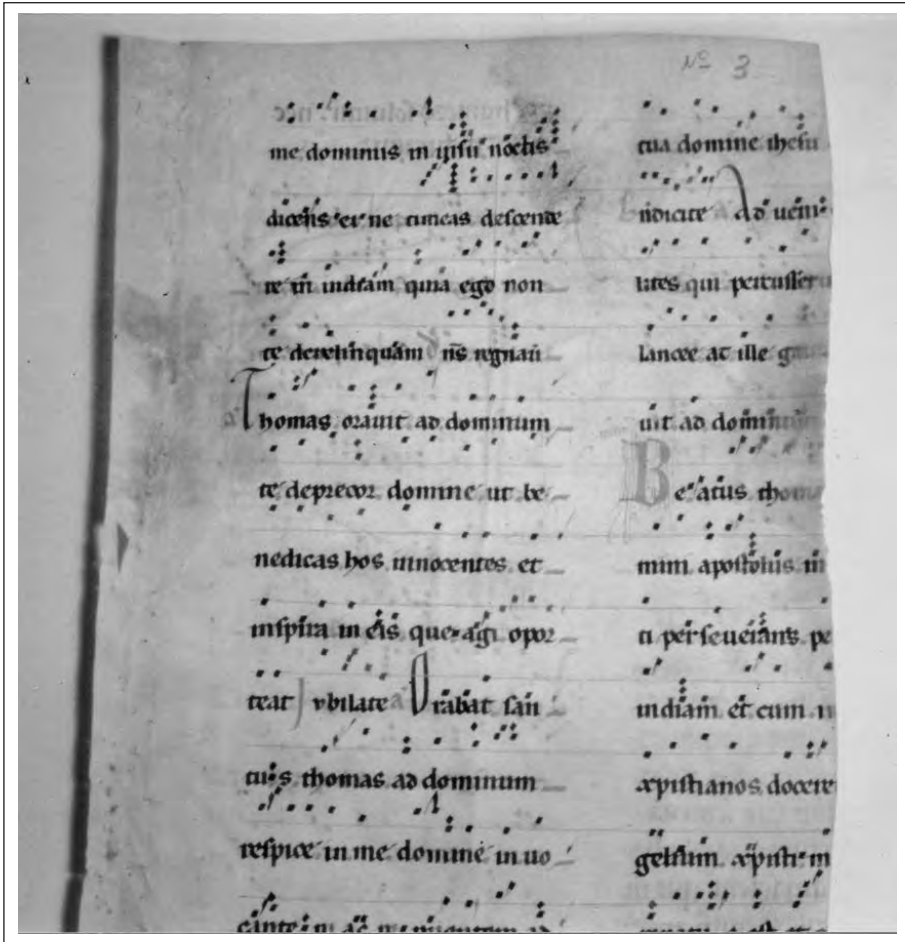 Nº 3
me dominus in ipsu noctis
dicens ei ne timeas descende
re in indiam quia ego non
te derelinquam ns regnau
Thomas orauit ad dominum
te deprecor domine ut be
nedicas hos innocentes et
inspira in eis que agi opor
teat Jubilate Orabat san
tus thomas ad dominum
respice in me domine in uo
tua domine ihesu
ndicite Ad ueni
lites qui percusser
lancee at ille
uit ad dominum
Beatus thom
mini apostolus in
ti perseuerans pe
indiam et cum
xpistianos docere
gelium xpisti in